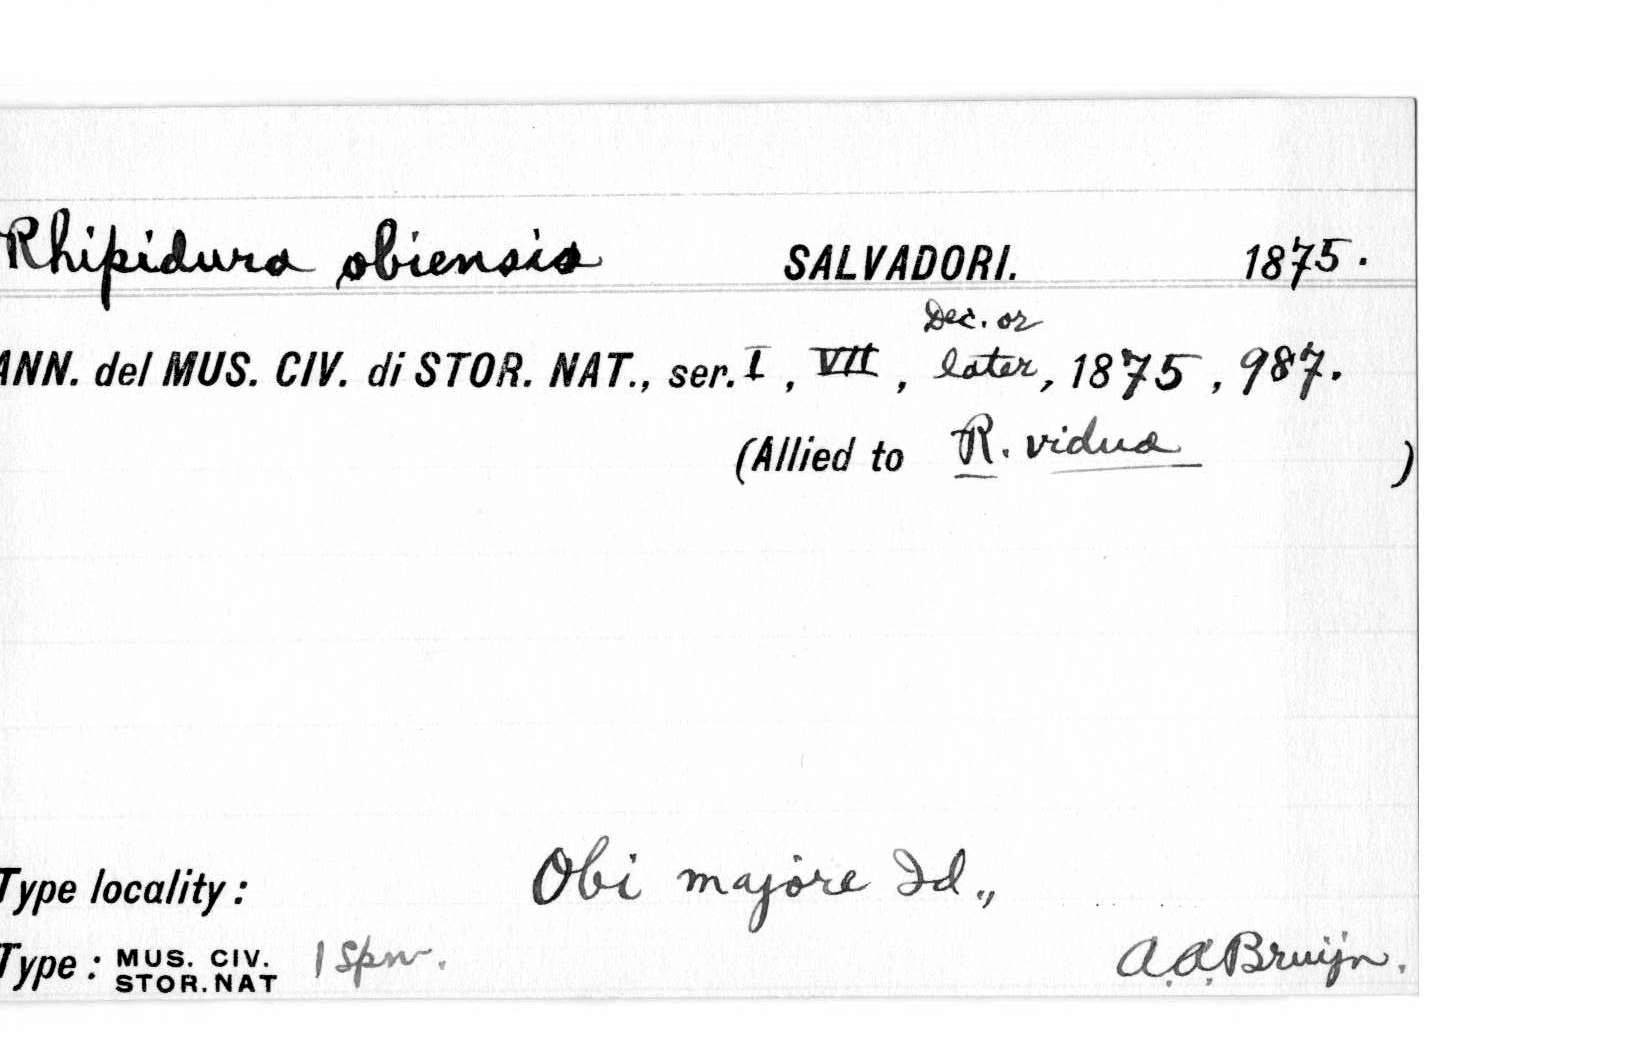 Rhipidura obiensis SALVADORI. 1875.
Dec. or
ANN. del MUS. CIV. di STOR. NAT., ser. I, VII, later, 1875, 987.
(Allied to R. vidua )
Type locality: Obi majore Id.,
Type: MUS. CIV. STOR. NAT 1 spm. A.A. Bruijn.